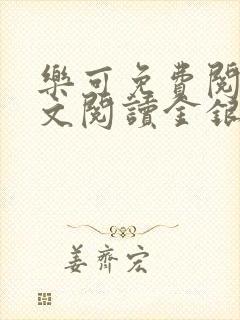 樂可免費閱
文閱讀金銀
姜齊宏